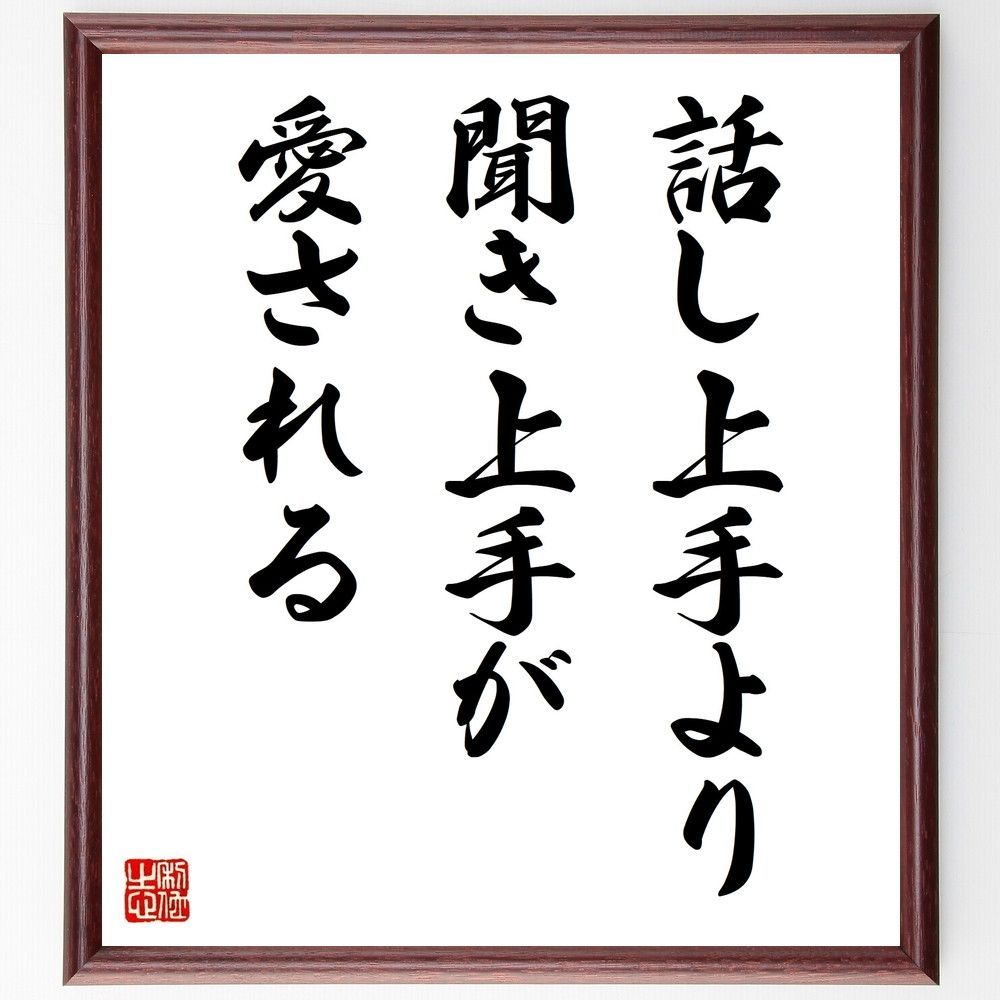 話し上手より
聞き上手が
愛される